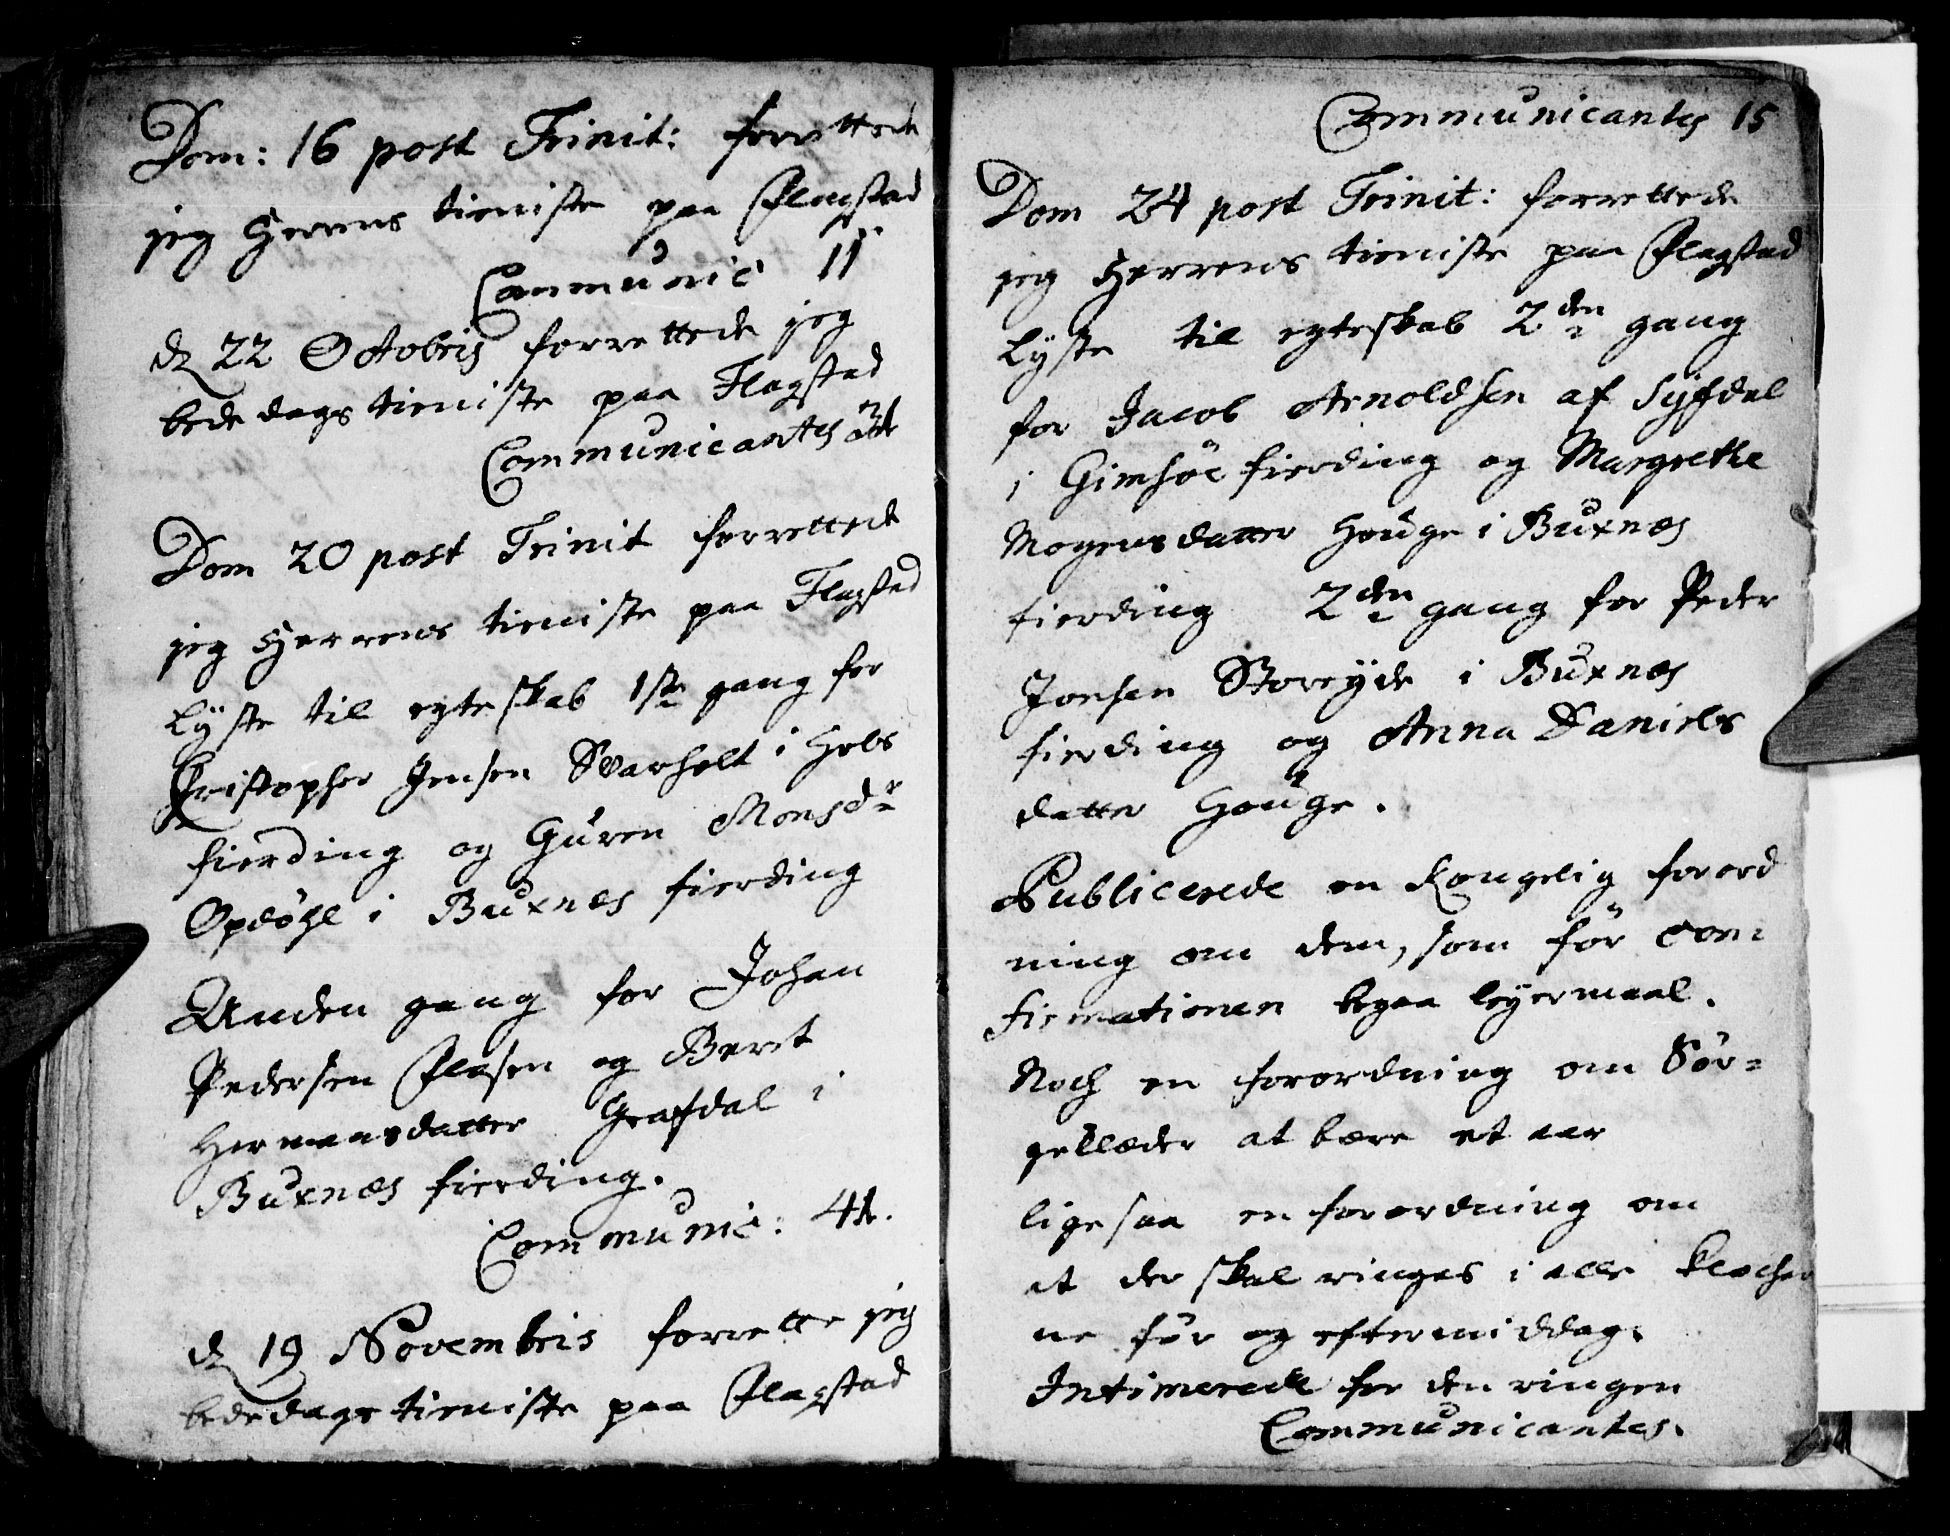 Dom: 16 post Trinit: forrettede
jeg Herrens tieniste paa Flagstad
Communic 11
d 22 Octobris forrettede jeg
bededags tieniste paa Flagstad
Communicantes
Dom 20 post Trinit forrettede
jeg Herrens tieniste paa Flagstad
Lyste til egteskab 1ste gang for
Christopher Jensen Svarholt i Hols
fierding og Guren Monsdr
Opdøhl i Buxnes fierding
Anden gang for Johan
Pedersen Olesen og Beret
Hermansdatter Grafdal i
Buxnæs fierding.
Communic: 41.
d 19 Novembris forrette jeg
bededags tieniste paa Flagstad
Communicantes 15
Dom 24 post Trinit: forrettede
jeg Herrens tieniste paa Flagstad
Lyste til egteskab 2den gang
for Jacob Arnoldsen af Syfdal
i Gimsöe fierding og Margrethe
Mogensdatter Houge i Buxnæs
fierding 2den gang for Peder
Jonsen Storeyde i Buxnæs
fierding og Anna Daniels
datter Houge.
Publicerede en Kongelig forord
ning om dem, som för con:
firmationen begaa leyermaal.
Noch en forordning om Sör=
geklæder at bære et aar
ligesaa en forordning om
at der skal ringes i alle klocher
ne för og eftermiddag.
Intimerede for den ringen
Communicantes.